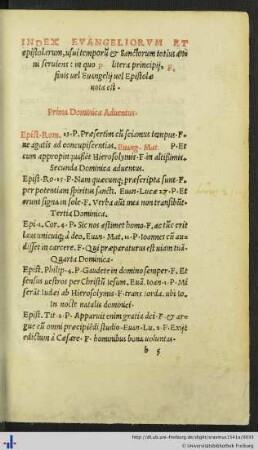 INDEX EVANGELIORVM ET
epistolarum, usui temporū & sanctorum totius anni
ni seruiens: in quo P litera principij, F,
finis uel Euangelij uel Epistolæ
nota est.
Prima Dominica Aduentus.
Epist. Rom. 13. P. Præsertim cū sciamus tempus. F.
ne agatis ad concupiscentias. Euang. Mat. P. Et
cum appropinquasset Hierosolymis. F. in altissimis.
Secunda Dominica aduentus.
Epist. Ro. 15. P. Nam quæcunque præscripta sunt. F.
per potentiam spiritus sancti. Euan. Lucæ 21. P. Et
erunt signa in sole. F. Verba aūt mea non transibūt.
Tertia Dominica.
Epi. 1. Cor. 4. P. Sic nos æstimet homo. F. ac tūc erit
laus unicuique à deo. Euan. Mat. 11. P. Ioannes cū audisset
in carcere. F. Qui præparaturus est uiam tuā.
Quarta Dominica.
Epist. Philip. 4. P. Gaudete in domino semper. F. Et
sensus uestros per Christū Iesum. Euā. Ioan. 1. P. Miserūt
Iudæi ab Hierosolymis. F. trans iorda. ubi Io.
In nocte natalis dominici.
Epist. Tit. 2. P. Apparuit enim gratia dei. F. & argue
cū omni præcipiēdi studio. Euan. Lu. 2. F. Exijt
edictum à Cæsare. F. hominibus bona uoluntas.
b 5
http://dl.ub.uni-freiburg.de/diglit/erasmus1541a/0033
© Universitätsbibliothek Freiburg